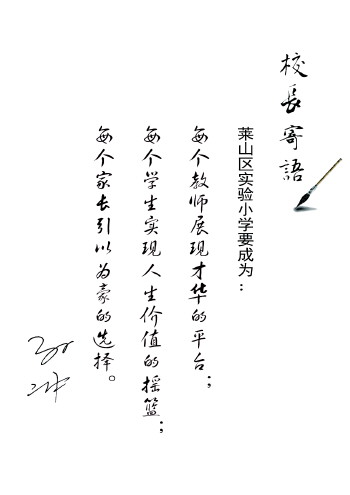 校長寄語
莱山区实验小学要成为：
每个教师展现才华的平台；
每个学生实现人生价值的摇篮；
每个家长引以为豪的选择。